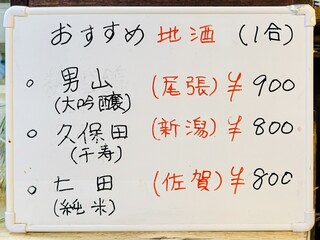 おすすめ 地酒 (1合)
○ 男山 (尾張) ¥ 900
(大吟醸)
○ 久保田 (新潟) ¥ 800
(千寿)
○ 七田 (佐賀) ¥ 800
(純米)